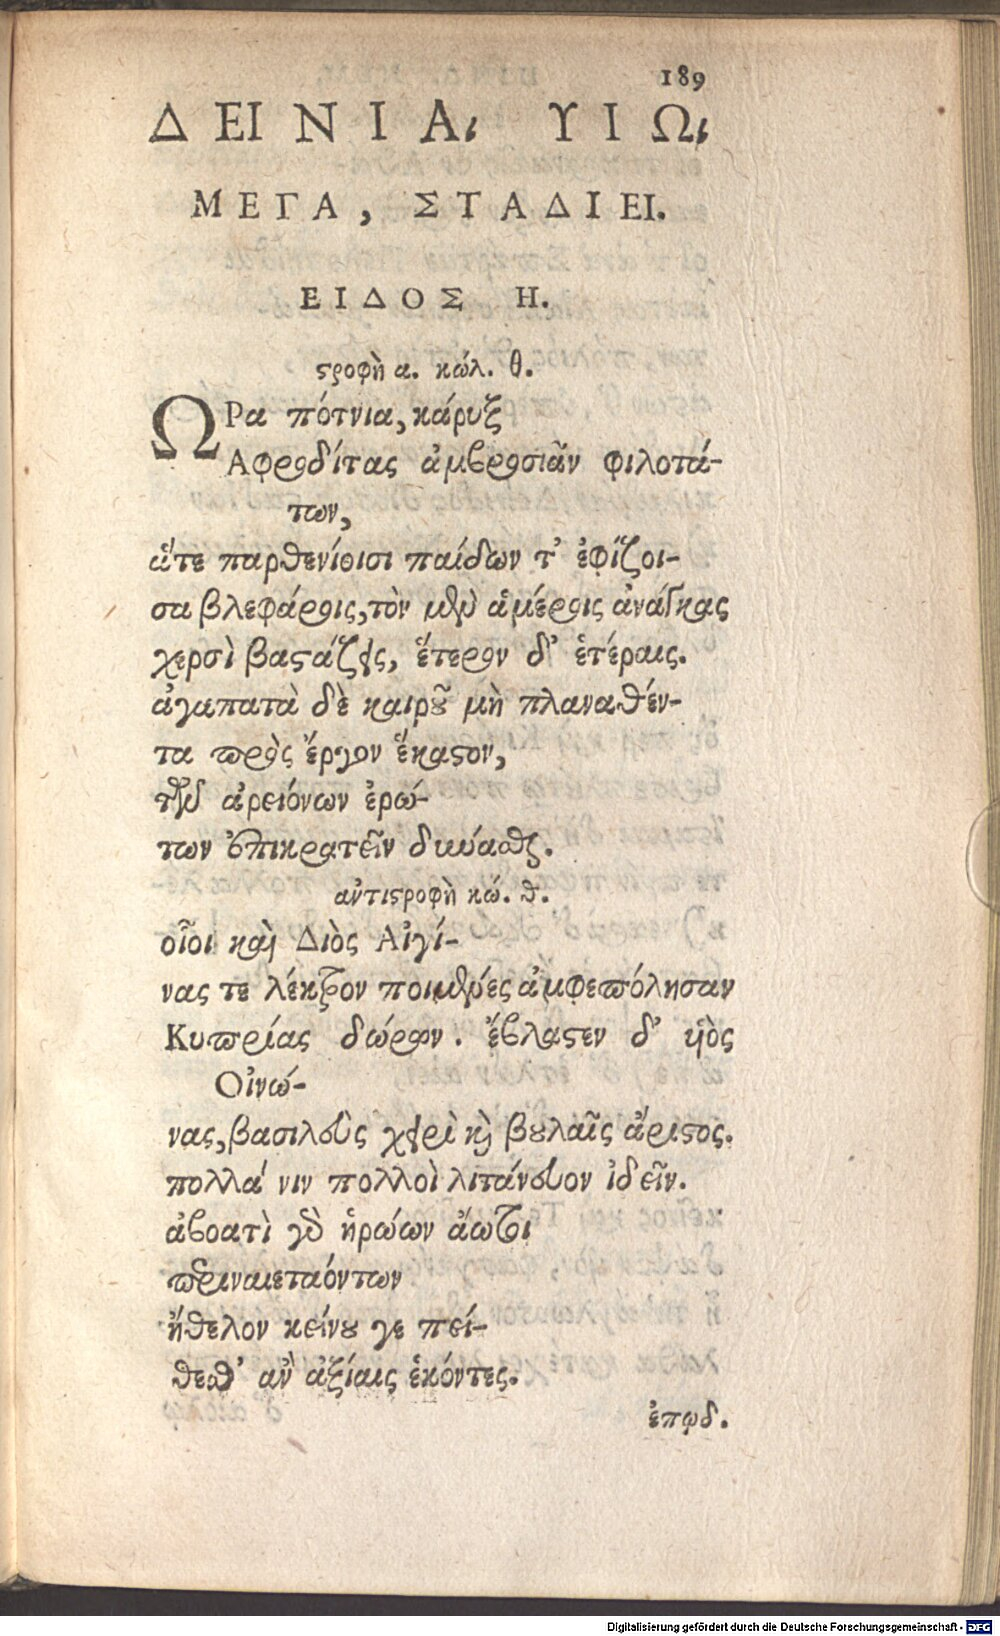 189
ΔΕΙΝΙΑι ΥΙΩι
ΜΕΓΑ, ΣΤΑΔΙΕΙ.
ΕΙΔΟΣ Η.
στροφὴ α. κώλ. θ.
ΩΡα πότνια, κάρυξ
Αφροδίτας ἀμβροσιᾶν φιλοτά-
των,
ἅτε παρθενίοισι παίδων τ' ἐφίζοι-
σα βλεφάροις, τὸν μὲν ἁμέροις ἀνάγκας
χερσὶ βαστάζεις, ἕτερον δ' ἑτέραις.
ἀγαπατὰ δὲ καιροῦ μὴ πλαναθέν-
τα πρὸς ἔργον ἕκαστον,
τῶν ἀρειόνων ἐρώ-
των ἐπικρατεῖν δύνασθαι.
αντιστροφὴ κώ. θ.
οἷοι καὶ Διὸς Αἰγί-
νας τε λέκτρον ποιμένες ἀμφεπόλησαν
Κυπρίας δώρων. ἔβλαστεν δ' υἱὸς
Οἰνώ-
νας, βασιλεὺς χειρὶ καὶ βουλαῖς ἄριστος.
πολλά νιν πολλοὶ λιτάνευον ἰδεῖν.
ἀβοατὶ γὰρ ἡρώων ἄωτοι
περιναιεταόντων
ἤθελον κείνου γε πεί-
θεσθ' αν ἀξίαις ἑκόντες.
ἐπῳδ.
Digitalisierung gefördert durch die Deutsche Forschungsgemeinschaft - DFG